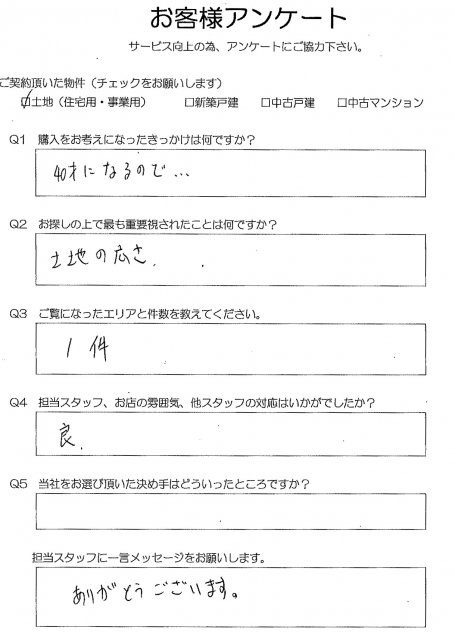 お客様アンケート
サービス向上の為、アンケートにご協力下さい。
ご契約頂いた物件（チェックをお願いします）
☑土地（住宅用・事業用）　□新築戸建　□中古戸建　□中古マンション
Q1　購入をお考えになったきっかけは何ですか？
40才になるので…
Q2　お探しの上で最も重要視されたことは何ですか？
土地の広さ.
Q3　ご覧になったエリアと件数を教えてください。
1 件
Q4　担当スタッフ、お店の雰囲気、他スタッフの対応はいかがでしたか？
良.
Q5　当社をお選び頂いた決め手はどういったところですか？
担当スタッフに一言メッセージをお願いします。
ありがとうございます。